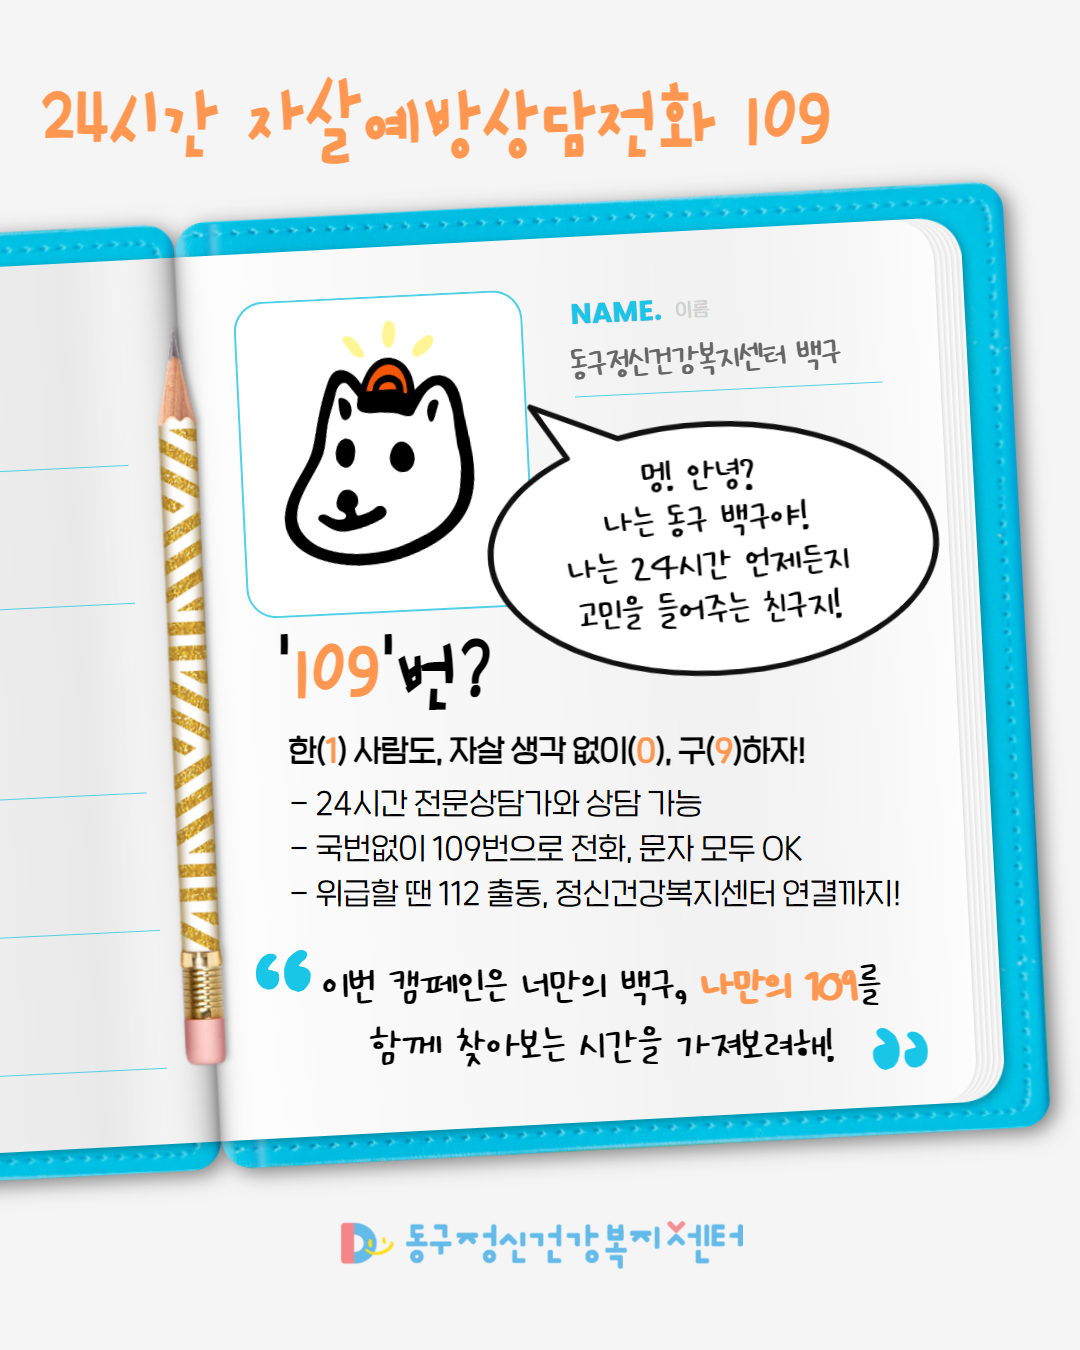 24시간 자살예방상담전화 109
NAME. 이름
동구정신건강복지센터 백구
멍! 안녕?
나는 동구 백구야!
나는 24시간 언제든지
고민을 들어주는 친구지!
'109'번?
한(1) 사람도, 자살 생각 없이(0), 구(9)하자!
- 24시간 전문상담가와 상담 가능
- 국번없이 109번으로 전화, 문자 모두 OK
- 위급할 땐 112 출동, 정신건강복지센터 연결까지!
“이번 캠페인은 너만의 백구, 나만의 109를
함께 찾아보는 시간을 가져보려해!”
동구정신건강복지센터